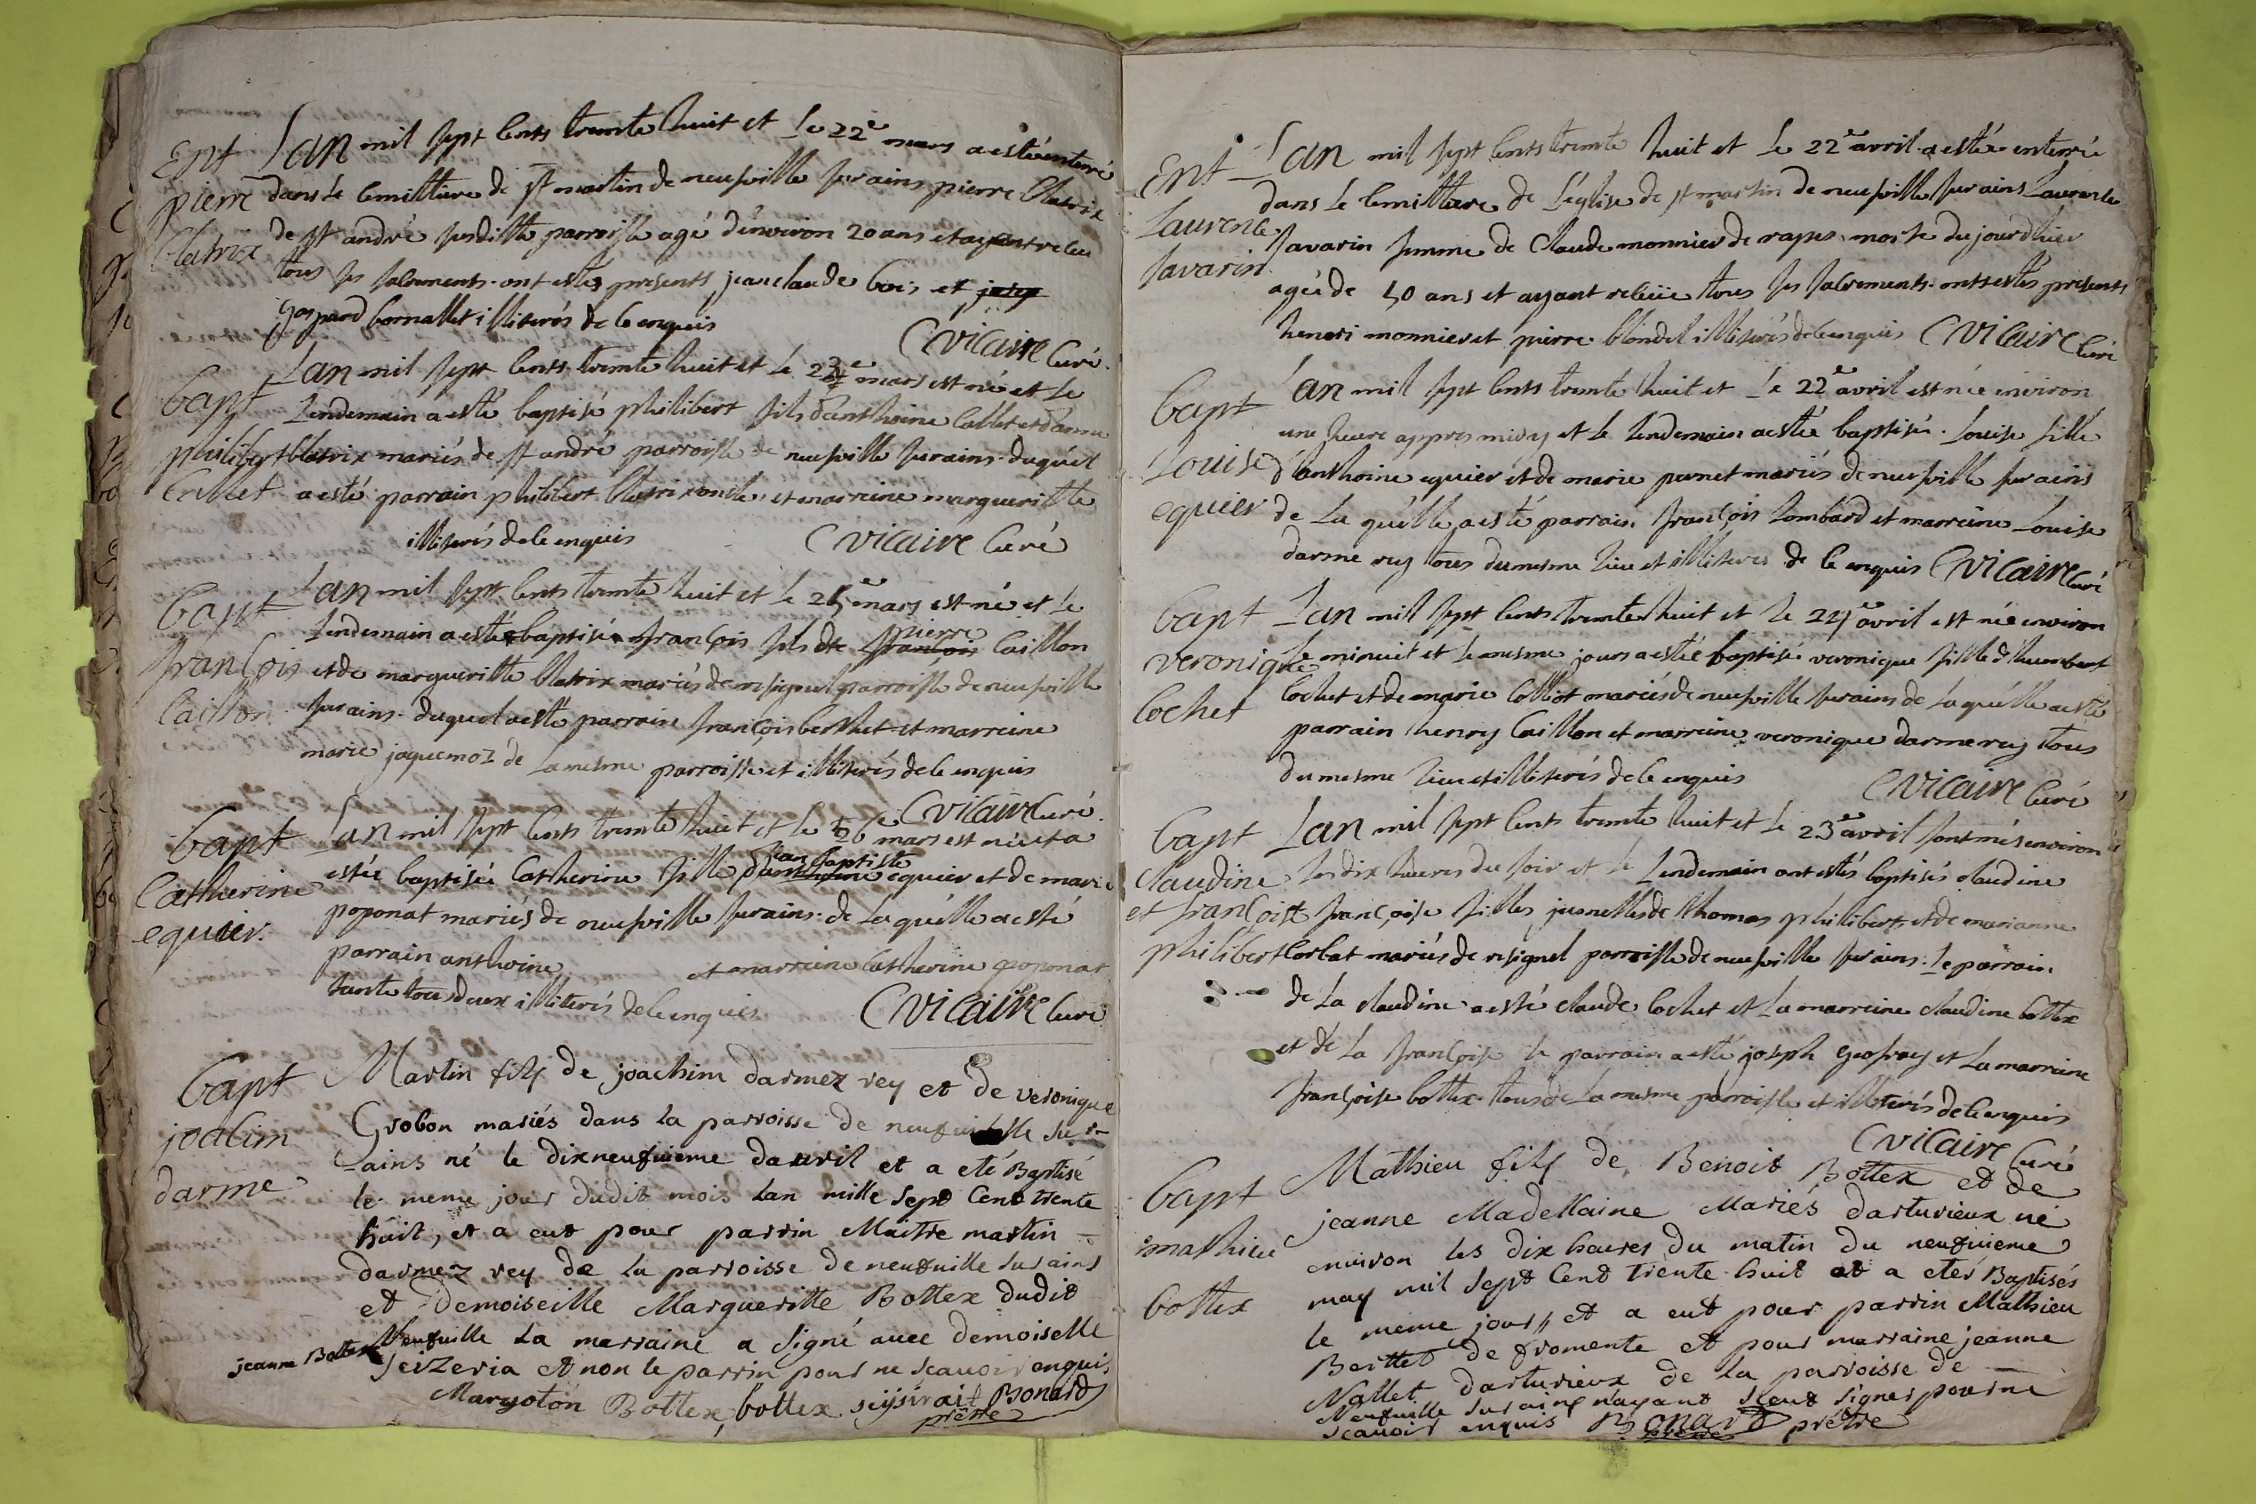 Ent
pierre
Blatrix
Lan mil sept cents trente huit et le 22e mars a esté enterré
dans le cemittiere de st martin de neufville sur ains pierre Blatrix
de st andré susditte parroisse agé d'environ 20 ans et ayant receu
tous ses sacrements. ont estés presents jean claude bois et
gaspard bornallet illiterés de ce enquis
C vicaire Curé.
bapt
philibert
Collet
Lan mil sept cents trente huit et le 23e mars est né et le
lendemain a esté baptisé philibert fils d'anthoine Collet et d'anne
blatrix mariés de st andré parroisse de neufville sur ains. duquel
a esté parrain philibert blatrix oncle et marreine margueritte
illiterés de ce enquis C vicaire Curé
bapt
françois
Caillon
Lan mil sept cents trente huit et le 25e mars est né et le
lendemain a esté baptisé françois fils de françois pierre Caillon
et de margueritte blatrix mariés de resignel parroisse de neufville
sur ains. duquel a esté parrain françois berthet et marreine
marie jaquemoz de la mesme parroisse et illiterés de ce enquis
C vicaire Curé.
bapt
Catherine
equier.
Lan mil sept cents trente huit et le 26e mars est née et a
estée baptisée Catherine fille d'anthoine jean baptiste equier et de marie
poponat mariés de neufville sur ains. de la quélle a esté
parrain anthoine et marreine Catherine poponat
tante tous deux illiterés de ce enquis C vicaire Curé
bapt
joalim
darme
Martin fils de joachim darmez rey et de veronique
Grobon mariés dans la parroisse de neufuille sur
ains né le dixneufuieme dauril et a eté Baptisé
le meme jour dudit mois lan mille sept Cent trente
huit, et a eut pour parrin Maitre martin
darmez rey de la parroisse de neufuille sur ains
et Demoiseille Margueritte Bottex dudit
Neufuille la marraine a signé auec demoiselle
jeanne Bottex
seizeria et non le parrin pour ne scauoir enquis
Margoton Bottex, bottex Bonard
prêtre
Ent
Laurence
savarin
Lan mil sept cents trente huit et le 22e avril a estée enterrée
dans le cemittiere de l'église de st martin de neufville sur ains Laurence
savarin femme de Claude monnier de rapes morte du jourdhier
agée de 50 ans et ayant receüe tous ses sacrements. ont estés presents
henori monnier et pierre blondel illiterés de ce enquis C vicaire Curé
bapt
Louise
equier
Lan mil sept cents trente huit et le 22e avril est née environ
une heure appres midy et le lendemain a estée baptisée. Louise fille
d'anthoine equier et de marie pernet mariés de neufville sur ains
de la quélle a esté parrain françois Lombard et marreine Louise
darme rey tous du mesme lieu et illiterés de ce enquis C vicaire Curé
bapt
veronique
Cochet
Lan mil sept cents trente huit et le 24e avril est née environ
le minuit et le mesme jours a estée baptisée veronique fille d'humbert
Cochet et de marie Colliot mariés de neufville sur ains de la quélle a esté
parrain henry Caillon et marreine veronique darmerey tous
du mesme lieu et illiterés de ce enquis C vicaire Curé
bapt
Claudine
et françoise
philibert
Lan mil sept cents trente huit et le 23e avril sont nés environ
les dix heures du soir et le lendemain ont estés baptisés claudine
françoise filles jumelles de thomas philibert et de marianne
Corbat mariés de resignel parroisse de neufville sur ains. le parrain
de la claudine a esté claude Cochet et la marreine claudine bottex
et de la françoise le parrain a esté joseph geofray et la marreine
françoise bottex tous de la mesme parroisse et illiterés de ce enquis
C vicaire Curé
bapt
mathieu
bottex
Mathieu fils de Benoit Bottex et de
jeanne Madellaine Mariés darturieux né
enuiron les dix heures du matin du neufuieme
may mil sept Cent trente huit et a etés Baptisés
le meme jour, et a eut pour parrin Mathieu
Berttet de fromente et pour marraine jeanne
Nallet darturieux de la parroisse de
Neufuille sur ains n'ayant sceut signer pour ne
scauoir enquis Bonard prêtre